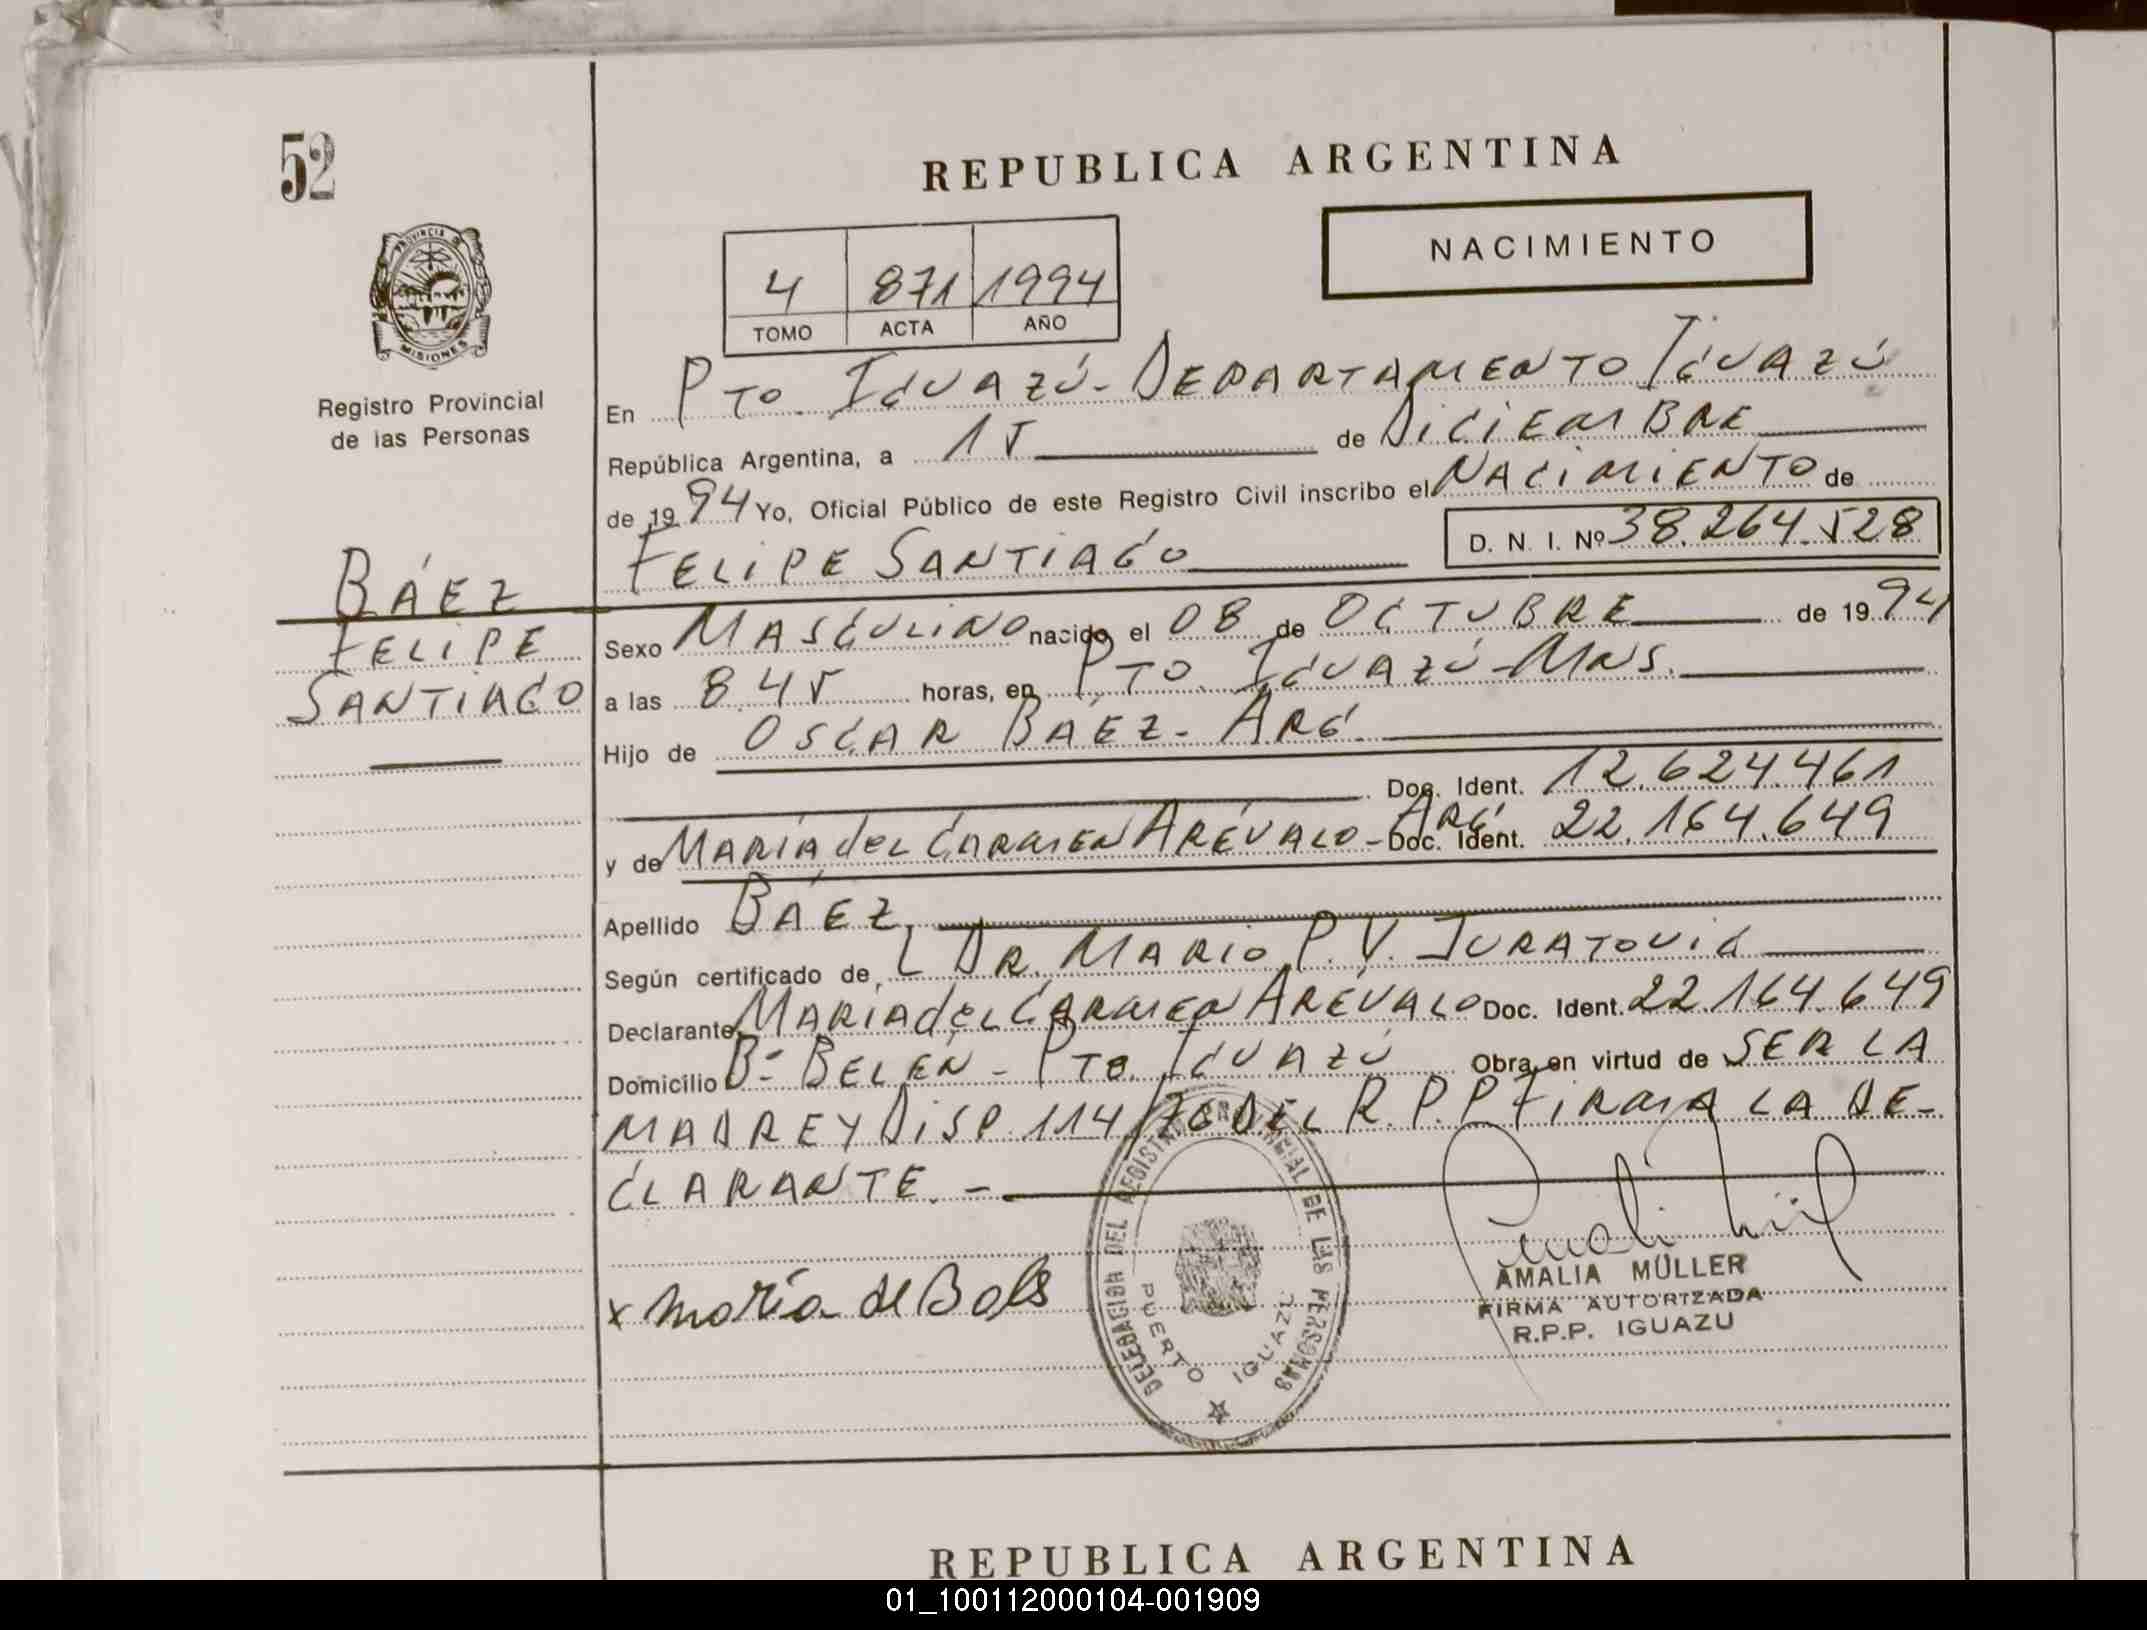 52
REPUBLICA ARGENTINA
PROVINCIA DE
MISIONES
Registro Provincial
de las Personas
4 871 1994
TOMO ACTA AÑO
NACIMIENTO
En PTO. IGUAZÚ - DEPARTAMENTO IGUAZÚ
República Argentina, a 15 de DICIEMBRE
de 1994 Yo, Oficial Público de este Registro Civil inscribo el NACIMIENTO de
FELIPE SANTIAGO D. N. I. Nº 38.264.528
BÁEZ
FELIPE
SANTIAGO
Sexo MASCULINO nacido el 08 de OCTUBRE de 1994
a las 8.45 horas, en PTO. IGUAZÚ - MNS.
Hijo de OSCAR BÁEZ - ARG.
Doc. Ident. 12.624.461
y de MARÍA del CARMEN ARÉVALO - ARG. Doc. Ident. 22.164.649
Apellido BÁEZ
Según certificado de, L DR. MARIO P. V. JURATOVIC
Declarante MARÍA del CARMEN ARÉVALO Doc. Ident. 22.164.649
Domicilio Bº BELÉN - PTO. IGUAZÚ Obra en virtud de SER LA
MADRE Y DISP. 114/76 DEL R.P.P FIRMA LA DE-
CLARANTE. -
x María de
DELEGACION DEL REGISTRO PROVINCIAL DE LAS PERSONAS
PUERTO IGUAZU
AMALIA MÜLLER
FIRMA AUTORIZADA
R.P.P. IGUAZU
REPUBLICA ARGENTINA
01_100112000104-001909